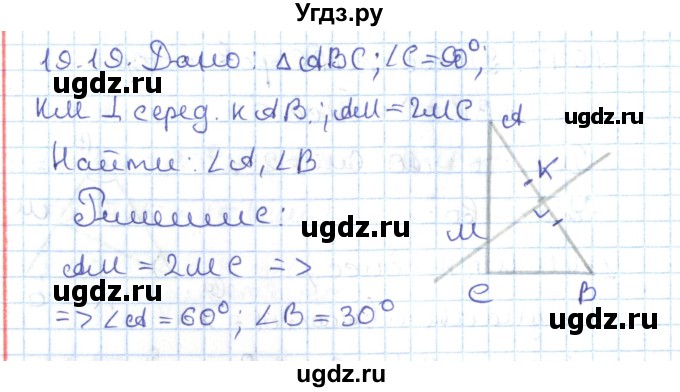 Угдз.ру
19.19. Дано: ΔABC; ∠C = 90°;
KM ⊥ серед. к AB.; AM = 2MC
Найти: ∠A, ∠B
Решение:
AM = 2MC =>
=> ∠A = 60°; ∠B = 30°
A
K
M
C
B
ugdz.ru
ugdz.ru
ugdz.ru
ugdz.ru
ugdz.ru
ugdz.ru
ugdz.ru
ugdz.ru